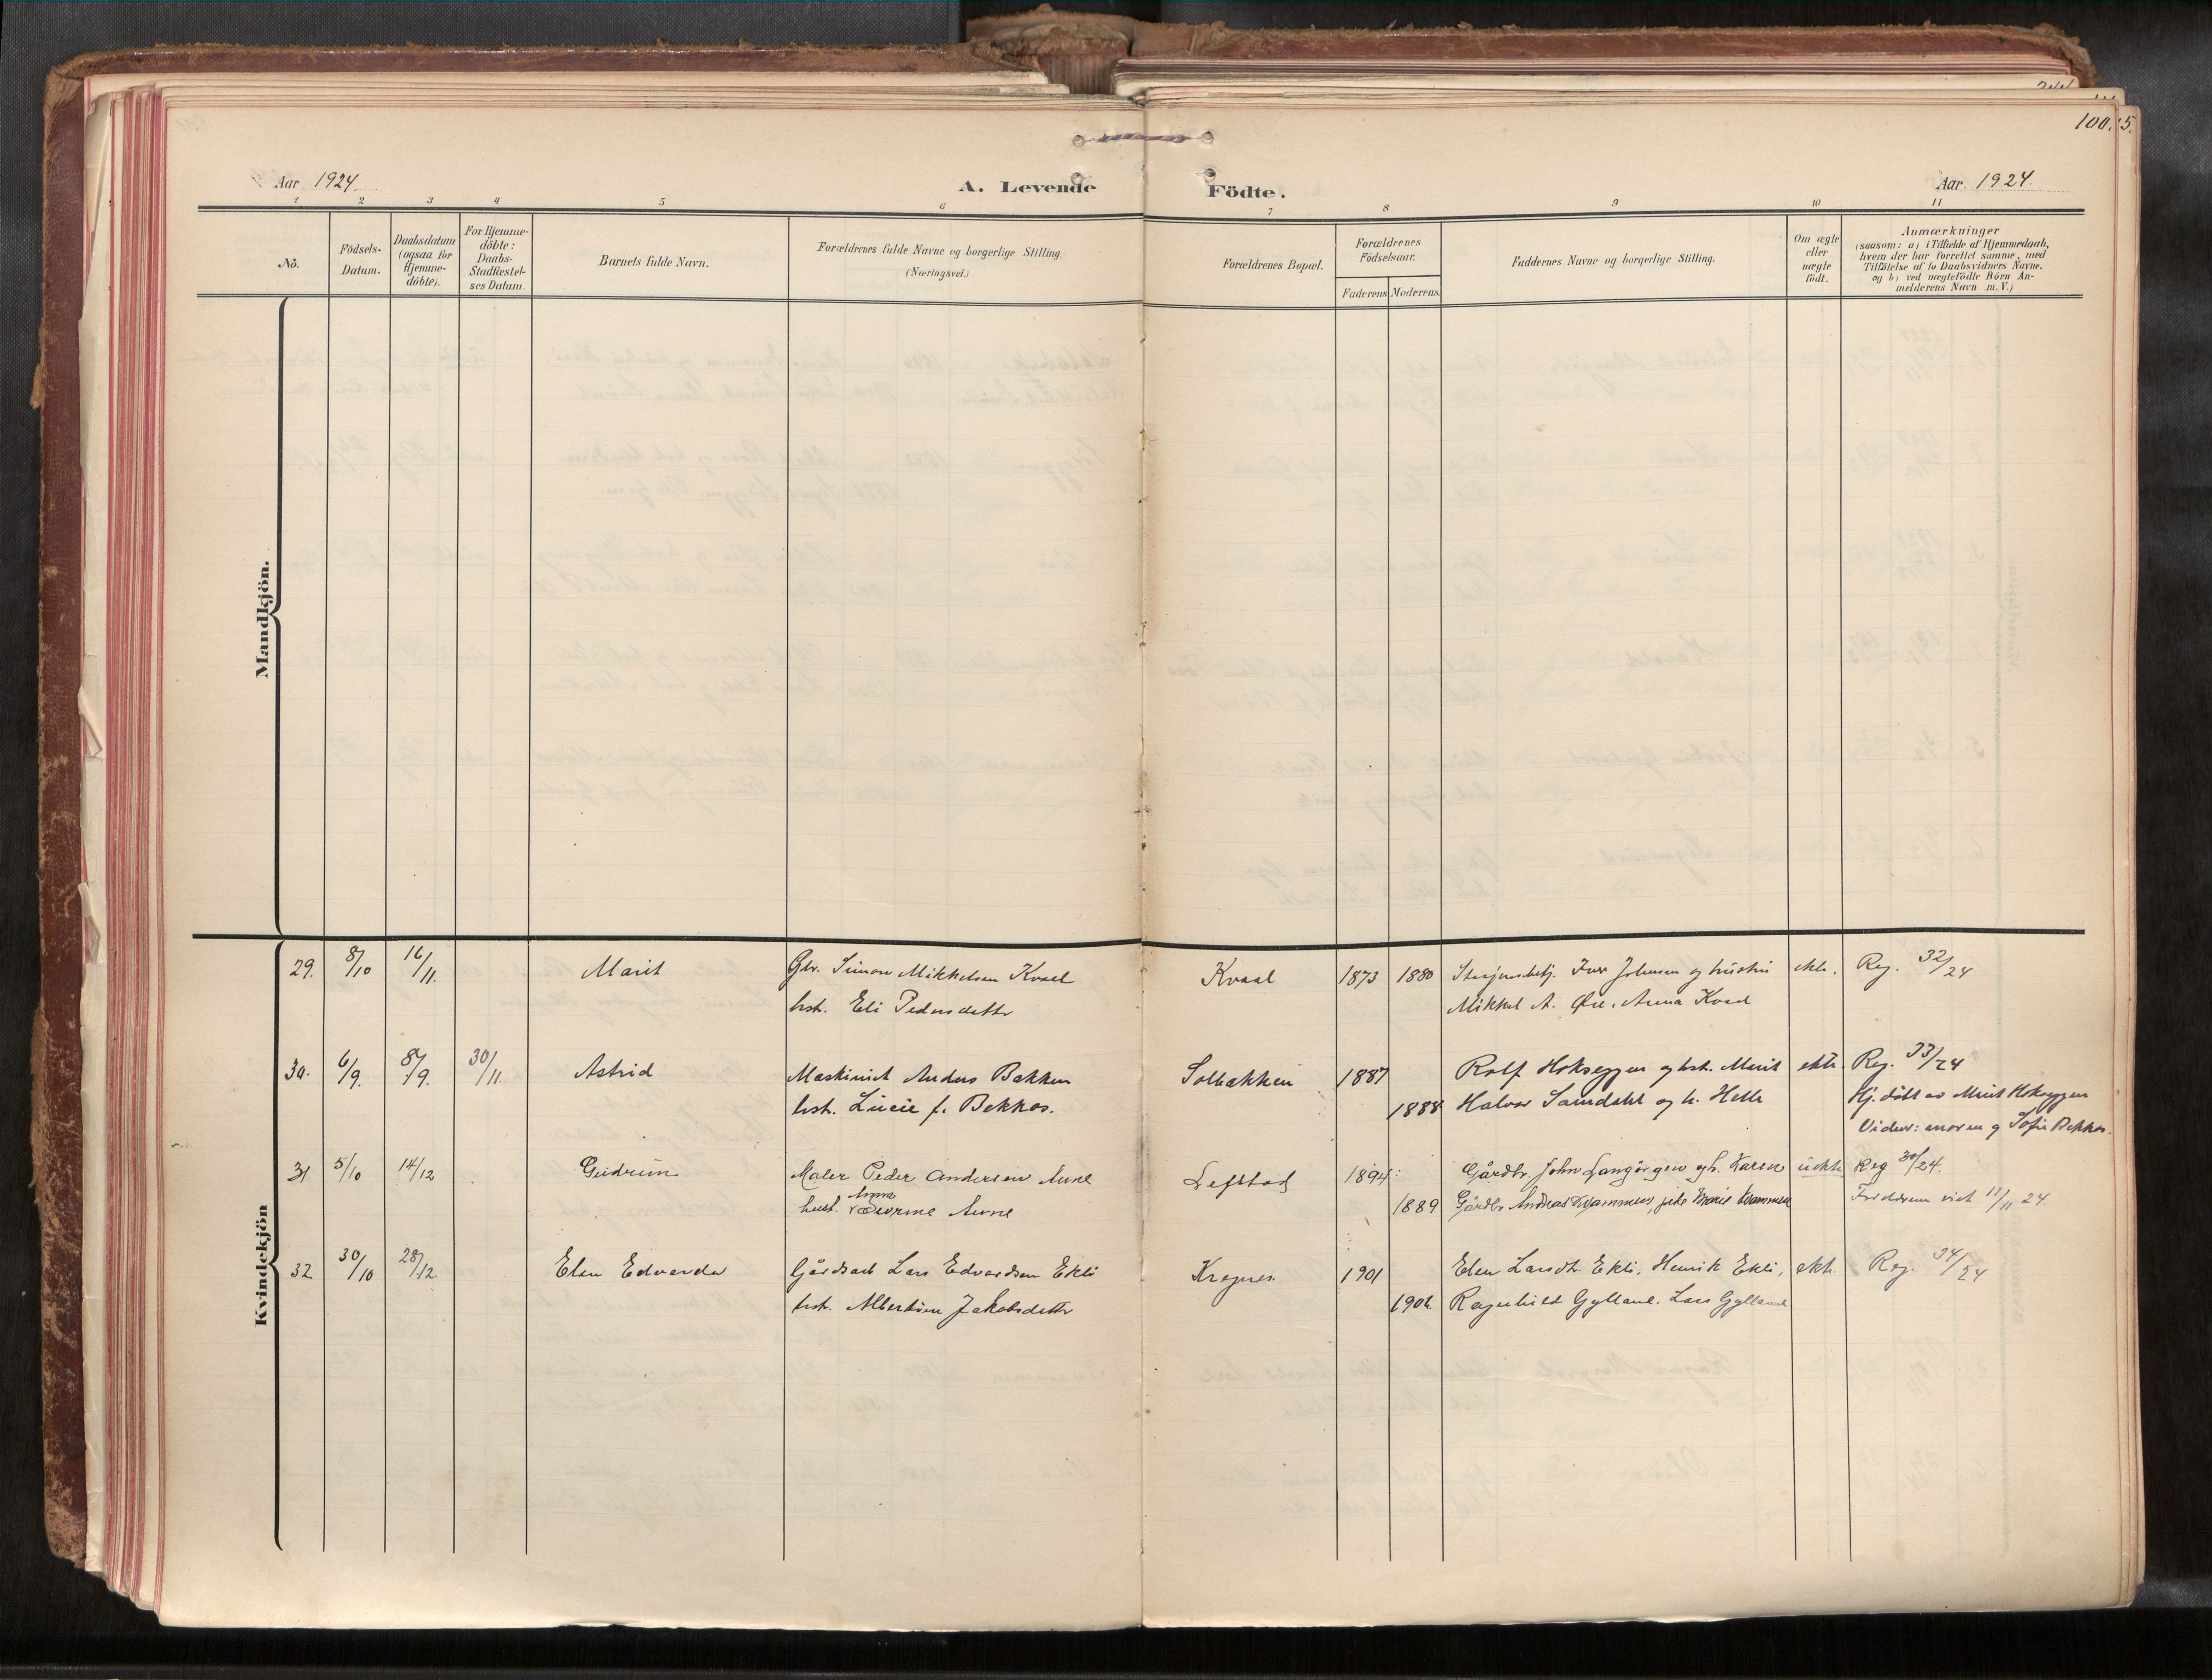 100.
5.
Aar 1924.
A. Levende Födte.
Aar. 1924.
1 2 3 4 5 6 7 8 9 10 11
No.
Födsels-Datum.
Daabsdatum (ogsaa for Hjemme-döbte).
For Hjemme-döbte: Daabs-Stadfæstel-ses Datum.
Barnets fulde Navn.
Forældrenes fulde Navne og borgerlige Stilling.
(Næringsvei.)
Forældrenes Bopæl.
Forældrenes Födselsaar.
Faderens Moderens.
Faddernes Navne og borgerlige Stilling.
Om ægte eller uægte födt.
Anmærkninger
(saasom: a) i Tilfælde af Hjemmedaab,
hvem der har forrettet samme, med
Tilföielse af to Daabsvidners Navne.
og b) ved uægtefödte Börn An-
melderens Navn m. V.)
Mandkjön.
Kvindekjön
29. 8/10 16/11. Marit Gbr. Simon Mikkelsen Kvaal Kvaal 1873 1880 Iver Johnsen og hustru ekte. Reg. 32/24
hst. Eli Pedersdatter Mikkel A. Øie. Anna Kvaal
30. 6/9. 8/9. 30/11. Astrid Maskinist Anders Bakken Solbakken 1887 Rolf Hokseggen og hst. Marit ekte. Reg. 33/24
hst. Lucie f. Bekkos. 1888 Halvor Samdahl og h. Helle Hj. døbt av Marit Hokseggen
Vidner: moren og Sofie Bekkos.
31 5/10 14/12 Gudrun Maler Peder Andersen Aune Leftstad 1894 Gårdbr. John Langørgen og h. Karen uekte Reg 30/24.
hust. Anna Aune 1889 Gårdbr Andreas Kvammen, pike Marie Kvammen Foreldrene viet 11/11 24.
32 30/10 28/12 Elen Edvarda Gårdsarb Lars Edvardsen Ekli Kregnes 1901 Elen Larsdt. Ekli, Henrik Ekli, ekte. Reg. 34/24
hst. Albertine Jakobsdatter 1901. Ragnhild Gylland. Lars Gylland